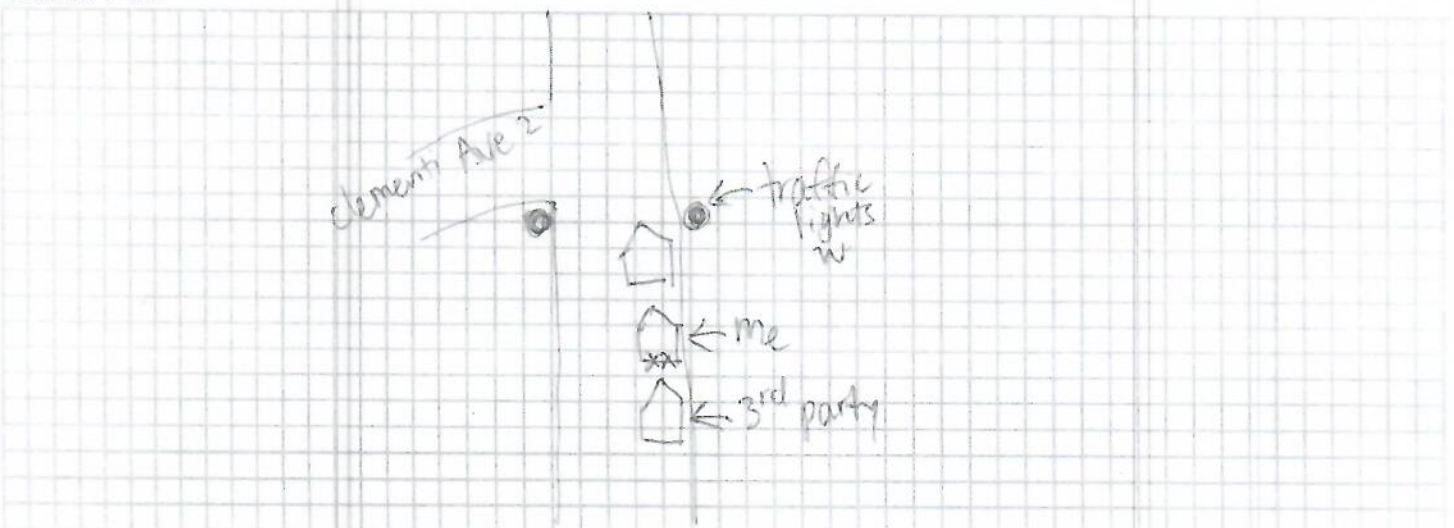 clementi Ave 2
← traffic
lights
← me
**
← 3rd party